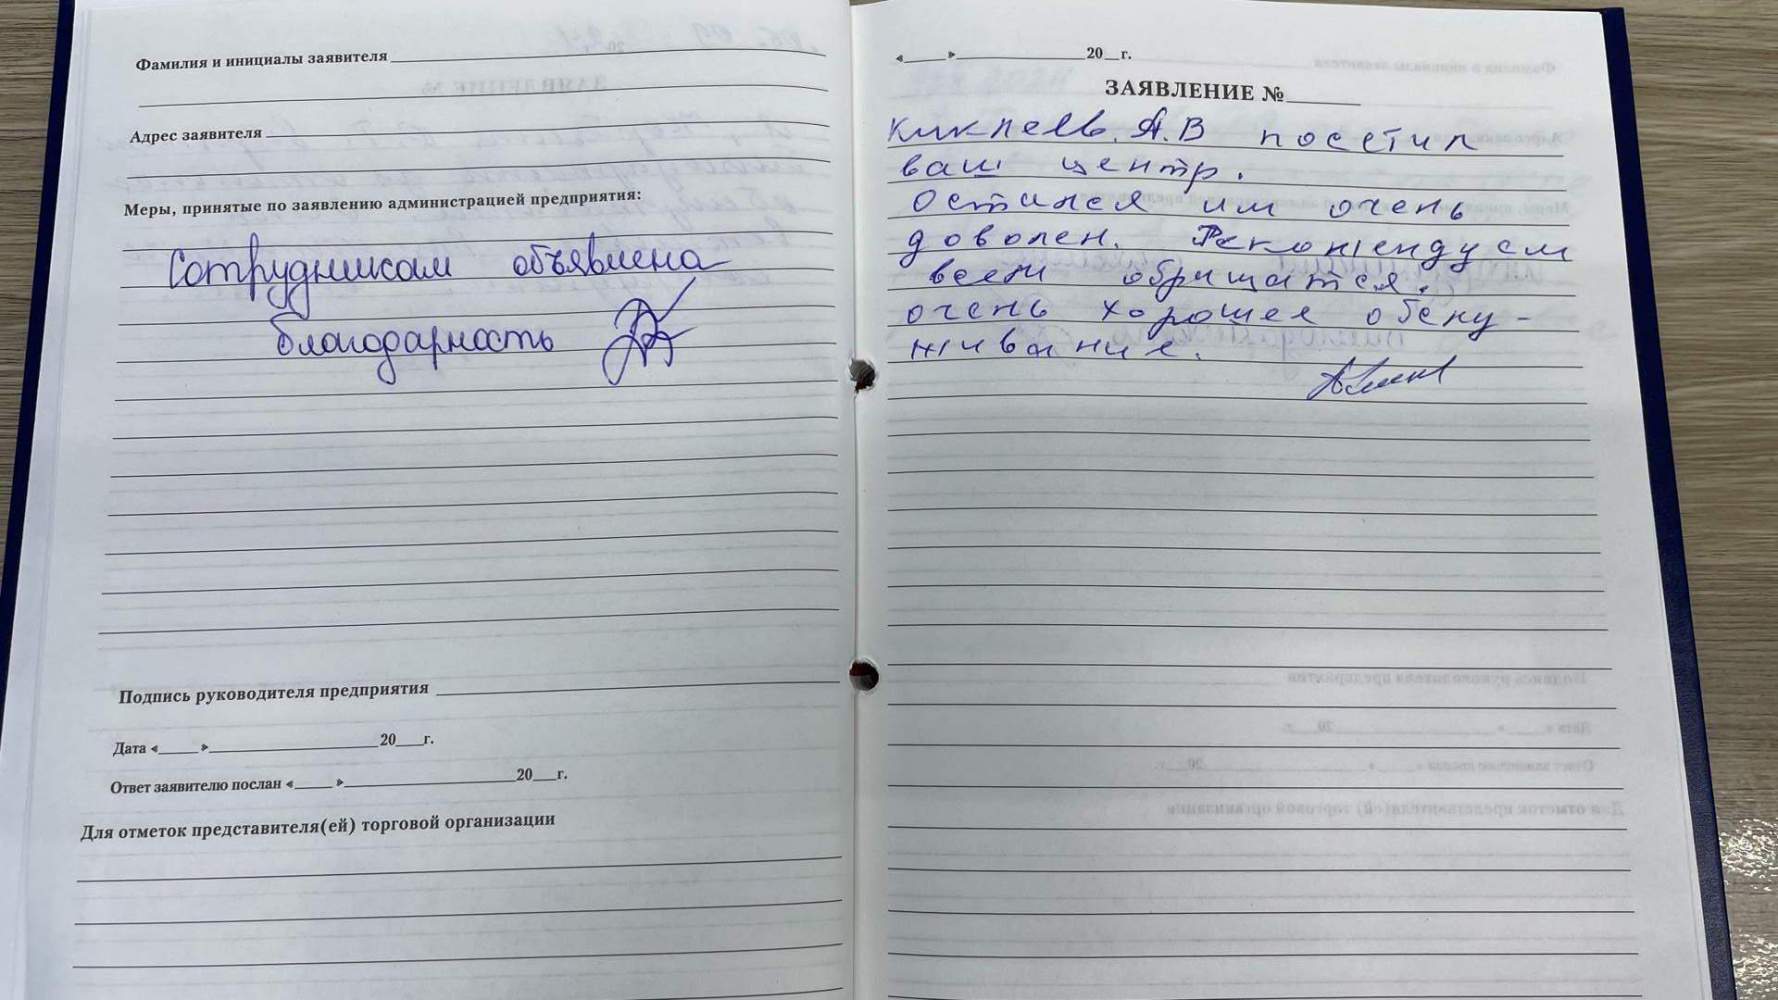 Фамилия и инициалы заявителя
Адрес заявителя
Меры, принятые по заявлению администрацией предприятия:
Сотрудникам объявлена
благодарность
Подпись руководителя предприятия
Дата «____»____________20___г.
Ответ заявителю послан «____»____________20___г.
Для отметок представителя(ей) торговой организации
«____»____________20__г.
ЗАЯВЛЕНИЕ №______
А.В посетил
ваш центр.
Остался им очень
доволен. Рекомендуем
всем обращатся.
очень хорошее обслу-
живание.